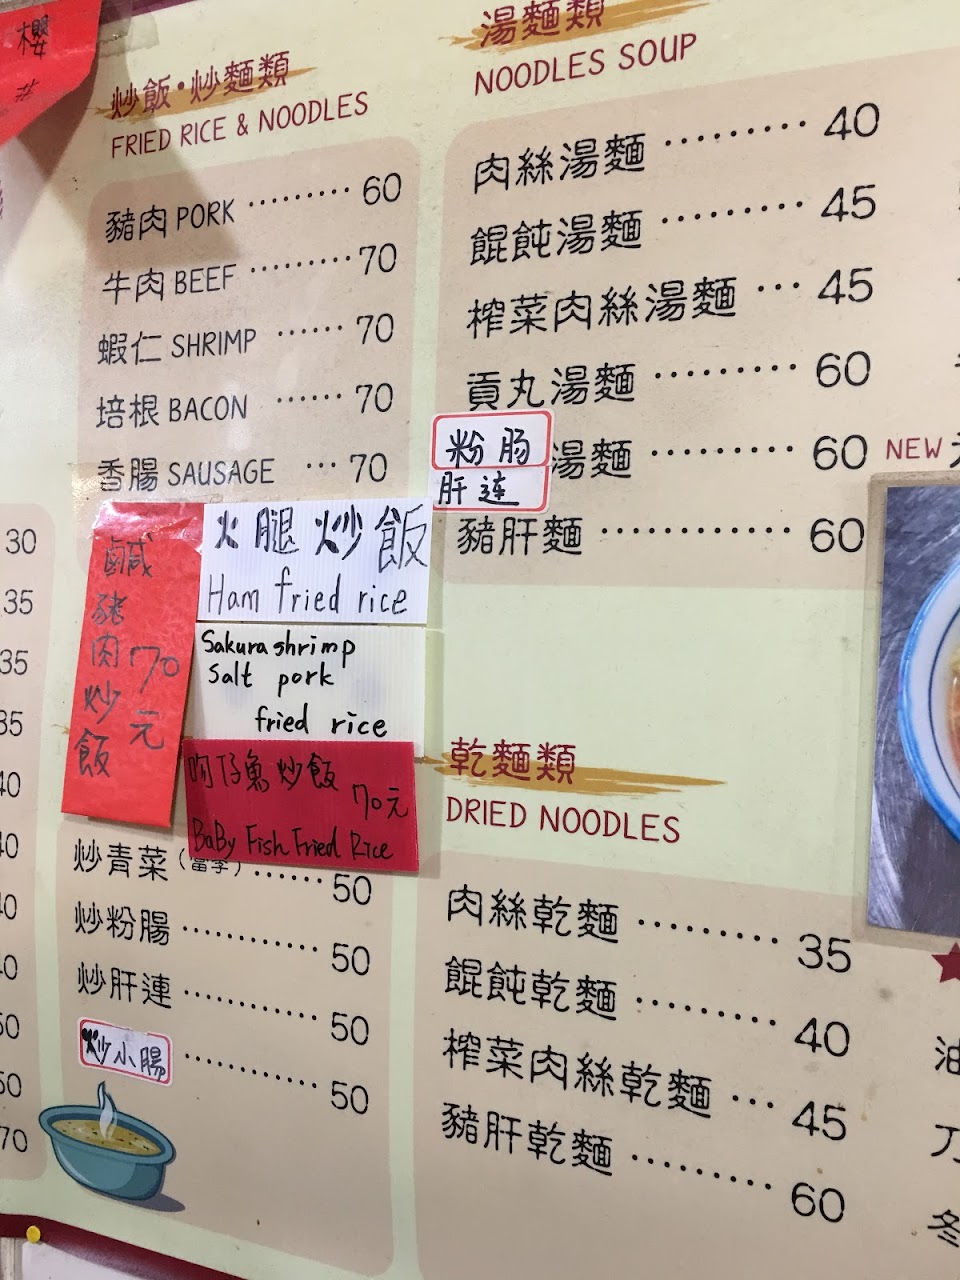 櫻
炒飯·炒麵類
FRIED RICE & NOODLES
豬肉 PORK ········· 60
牛肉 BEEF ········· 70
蝦仁 SHRIMP ······ 70
培根 BACON ······ 70
香腸 SAUSAGE ··· 70
火腿炒飯
Ham fried rice
鹹豬肉炒飯
70元
Sakura shrimp
Salt pork
fried rice
吻仔魚炒飯
70元
BaBy Fish Fried Rice
炒青菜(當季) ······ 50
炒粉腸 ············ 50
炒肝連 ············ 50
炒小腸 ············ 50
30
35
35
35
40
40
40
40
50
50
70
湯麵類
NOODLES SOUP
肉絲湯麵 ········· 40
餛飩湯麵 ········· 45
榨菜肉絲湯麵 ··· 45
貢丸湯麵 ········· 60
粉肠
肝连
湯麵 ········· 60
豬肝麵 ············ 60
乾麵類
DRIED NOODLES
肉絲乾麵 ·········· 35
餛飩乾麵 ·········· 40
榨菜肉絲乾麵 ··· 45
豬肝乾麵 ·········· 60
NEW
油
刀
冬